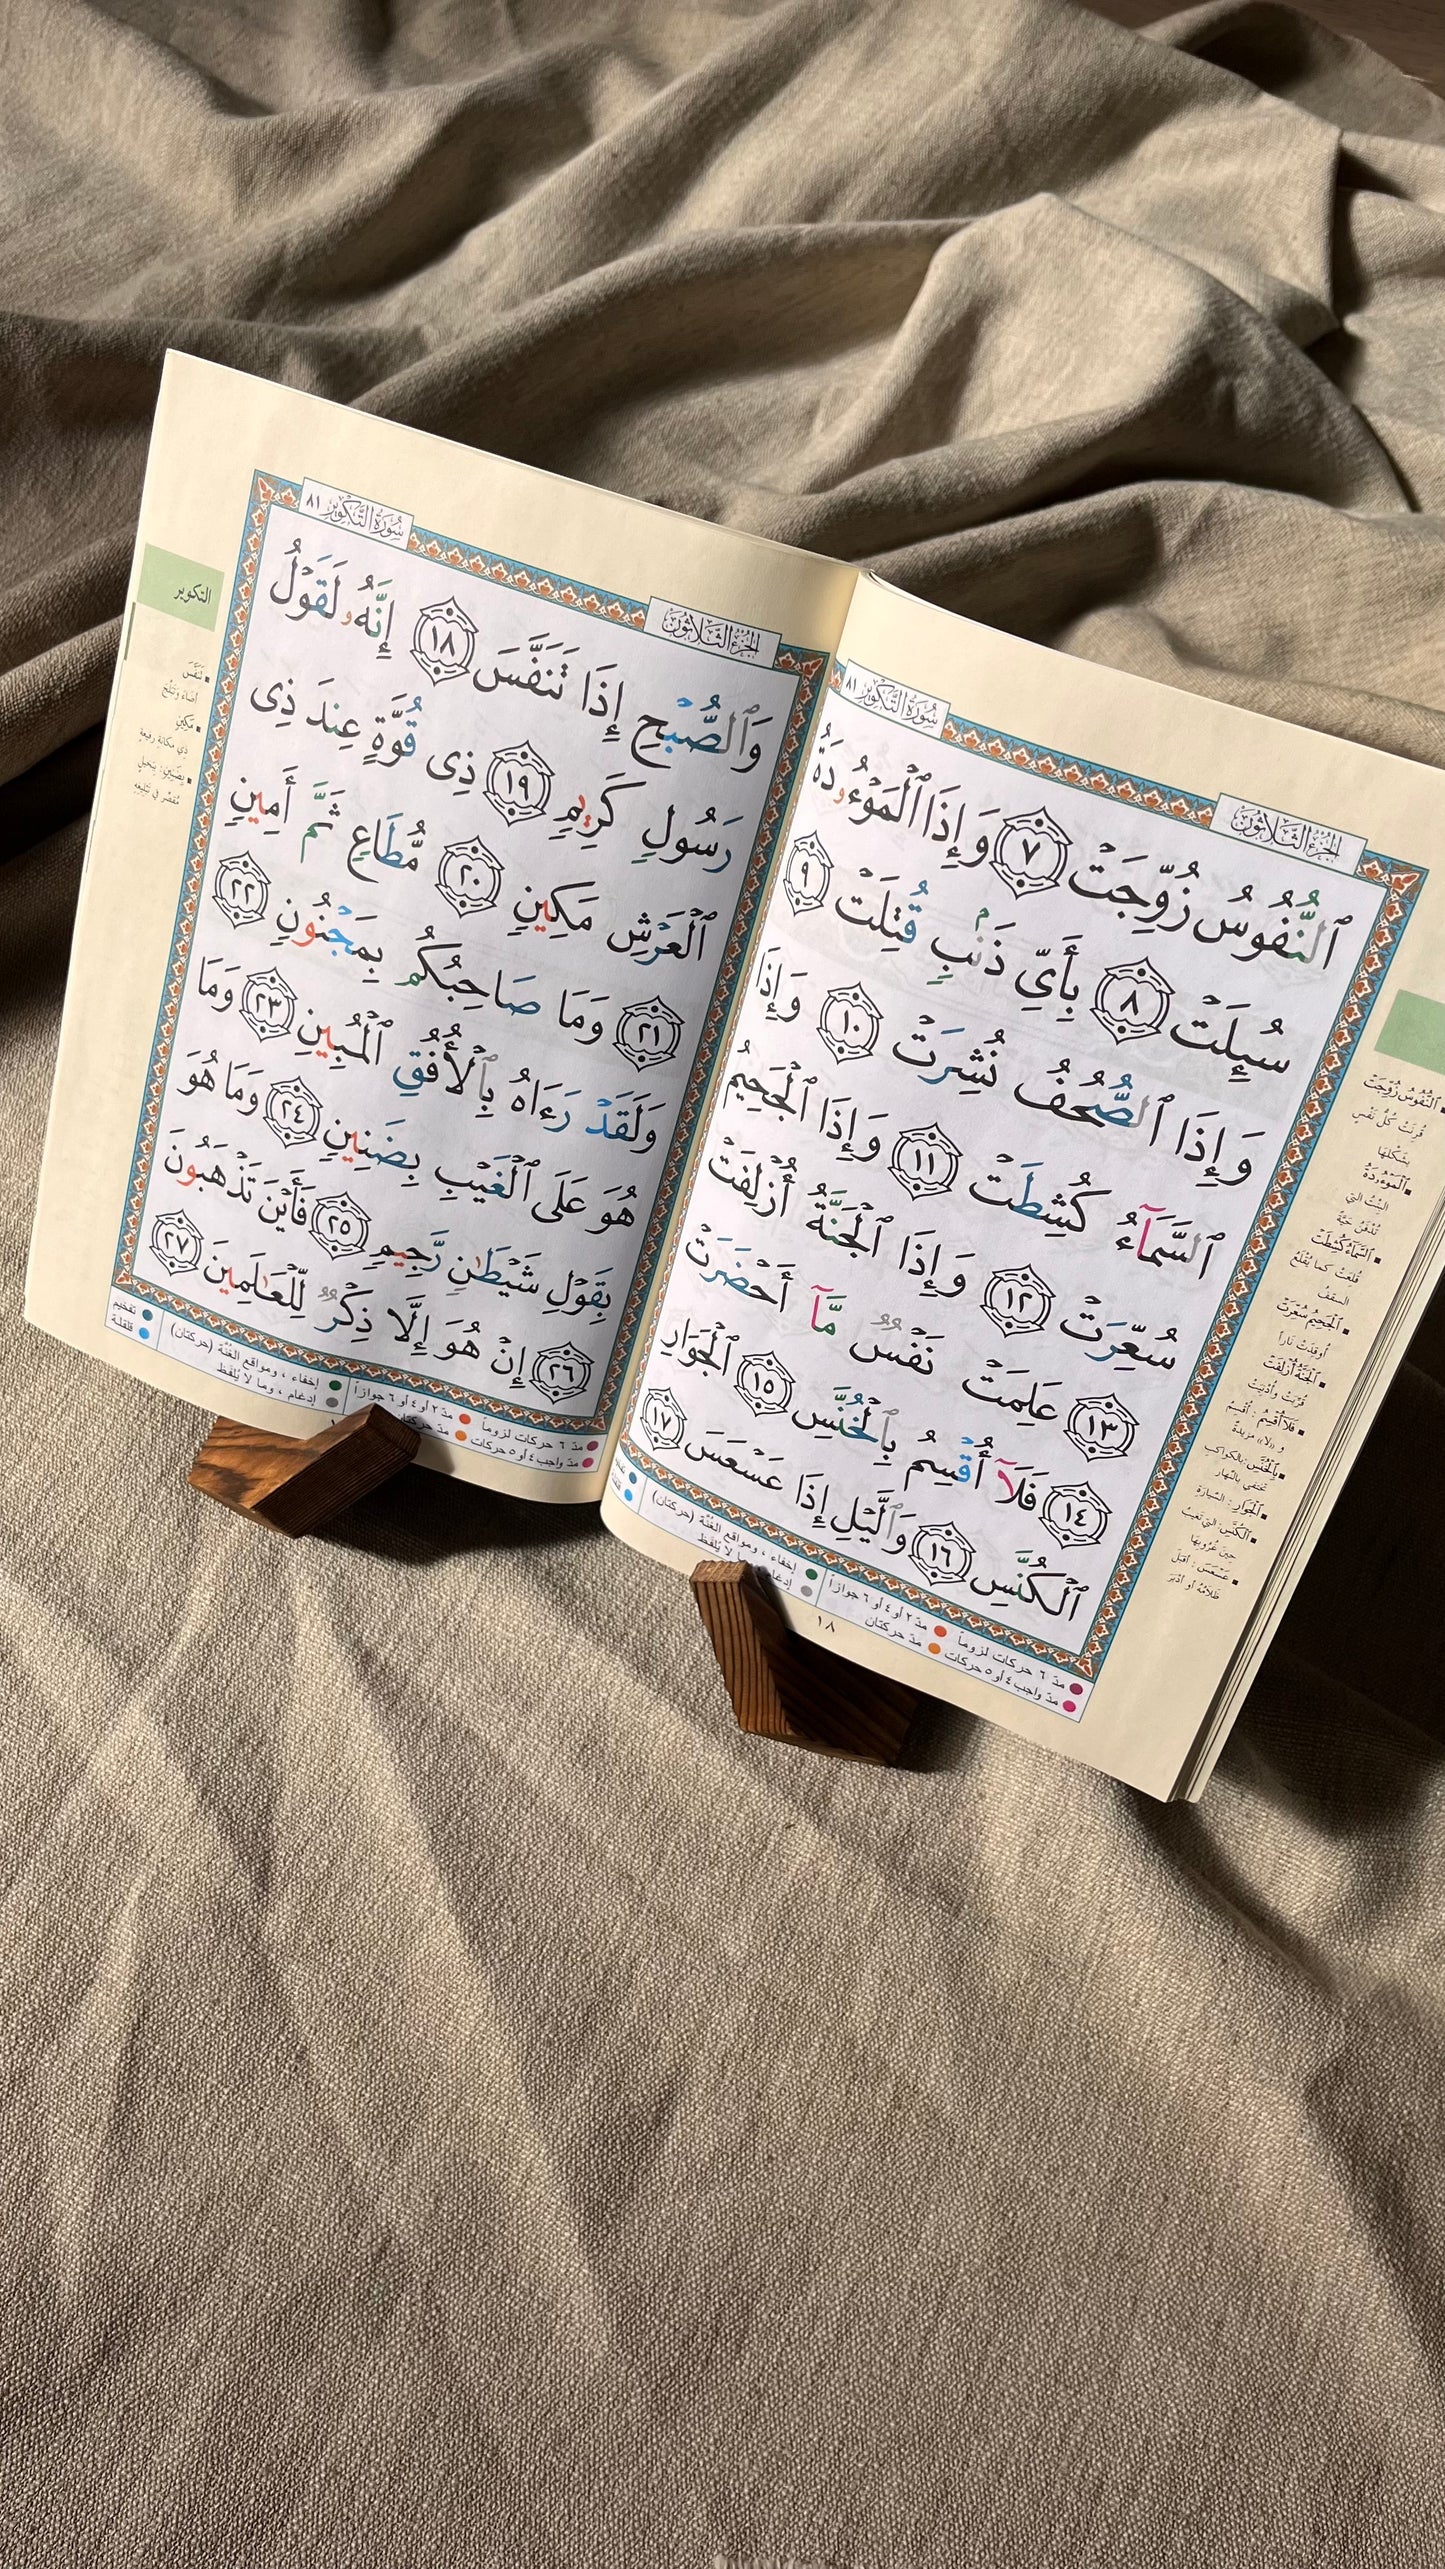 سُورَةُ التَّكْوِيرِ ٨١
الجُزْءُ الثَّلَاثُونَ
ٱلنُّفُوسُ زُوِّجَتْ ٧ وَإِذَا ٱلْمَوْءُۥدَةُ
سُئِلَتْ ٨ بِأَيِّ ذَنۢبٍ قُتِلَتْ ٩
وَإِذَا ٱلصُّحُفُ نُشِرَتْ ١٠ وَإِذَا
ٱلسَّمَآءُ كُشِطَتْ ١١ وَإِذَا ٱلْجَحِيمُ
سُعِّرَتْ ١٢ وَإِذَا ٱلْجَنَّةُ أُزْلِفَتْ
١٣ عَلِمَتْ نَفْسٌ مَّآ أَحْضَرَتْ
١٤ فَلَآ أُقْسِمُ بِٱلْخُنَّسِ ١٥ ٱلْجَوَارِ
ٱلْكُنَّسِ ١٦ وَٱلَّيْلِ إِذَا عَسْعَسَ ١٧
ٱلنُّفُوسُ زُوِّجَتْ
قُرِنَتْ كُلُّ نَفْسٍ
بِشَكْلِهَا
ٱلْمَوْءُۥدَةُ
البِنْتُ التي
تُدْفَنُ حَيَّةً
ٱلسَّمَآءُ كُشِطَتْ
قُلِعَتْ كما يُقْلَعُ
السقفُ
ٱلْجَحِيمُ سُعِّرَتْ
أُوقِدَتْ ناراً
ٱلْجَنَّةُ أُزْلِفَتْ
قُرِّبَتْ وأُدْنِيَتْ
فَلَآ أُقْسِمُ : أُقْسِمُ
و «لا» مزيدةٌ
بِٱلْخُنَّسِ: بالكواكب
تختفي بالنَّهار
ٱلْجَوَارِ : السَّيارة
ٱلْكُنَّسِ: التي تغيبُ
حِينَ غُرُوبِهَا
عَسْعَسَ : أقبلَ
ظَلامُهُ أو أدْبَرَ
مدّ ٦ حركات لزوماً
مدّ ٢ أو ٤ أو ٦ جوازاً
إخفاء ، ومواقع الغُنَّة (حركتان)
مدّ واجب ٤ أو ٥ حركات
مدّ حركتان
١٨
سُورَةُ التَّكْوِيرِ ٨١
الجُزْءُ الثَّلَاثُونَ
وَٱلصُّبْحِ إِذَا تَنَفَّسَ ١٨ إِنَّهُۥ لَقَوْلُ
رَسُولٍ كَرِيمٍ ١٩ ذِى قُوَّةٍ عِندَ ذِى
ٱلْعَرْشِ مَكِينٍ ٢٠ مُّطَاعٍ ثَمَّ أَمِينٍ
٢١ وَمَا صَاحِبُكُم بِمَجْنُونٍ ٢٢
وَلَقَدْ رَءَاهُ بِٱلْأُفُقِ ٱلْمُبِينِ ٢٣ وَمَا
هُوَ عَلَى ٱلْغَيْبِ بِضَنِينٍ ٢٤ وَمَا هُوَ
بِقَوْلِ شَيْطَٰنٍ رَّجِيمٍ ٢٥ فَأَيْنَ تَذْهَبُونَ
٢٦ إِنْ هُوَ إِلَّا ذِكْرٌ لِّلْعَٰلَمِينَ ٢٧
التكوير
تَنَفَّسَ
أضاءَ وتبلَّجَ
مَكِينٍ
ذِي مكانة رفيعةٍ
بِضَنِينٍ: بِبَخيلٍ
مُقصِّر في تَبْلِيغِهِ
مدّ ٦ حركات لزوماً
مدّ ٢ أو ٤ أو ٦ جوازاً
إخفاء ، ومواقع الغُنَّة (حركتان)
تفخيم
مدّ واجب ٤ أو ٥ حركات
إدغام ، وما لا يُلفَظ
قلقلة